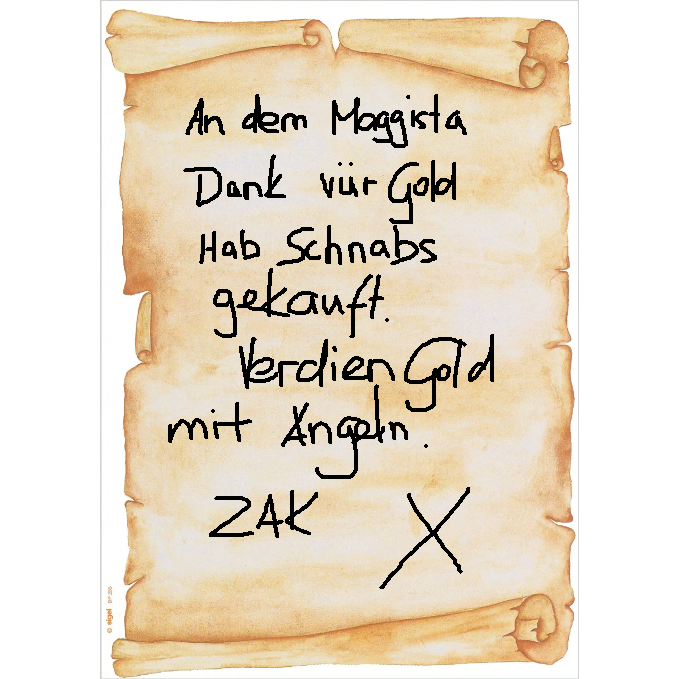 An dem Maggista
Dank vür Gold
Hab Schnabs
gekauft.
Verdien Gold
mit Angeln.
ZAK X
© sigel